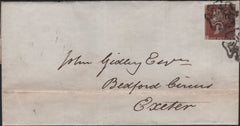 John Gidley Esqre
Bedford Circus
Exeter